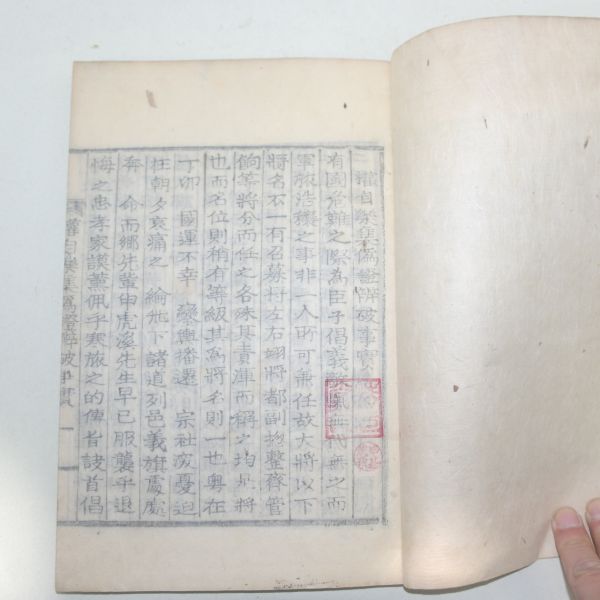 權自樂集僞證辨破事實
有國危難之際爲臣子倡義 無代無之而
軍旅浩穰之事非一人所可兼任故大將以下
將名不一有召募村左右翊將都副摠整齊管
餉等將分而任之各殊其責庫而稱之均是將
也而名位則稍有等級其爲將名則一也粤在
丁卯 國運不幸 鑾輿播遷 宗社深憂迫
在朝夕哀痛之 綸北下諸道列邑義旗處處
奔 命而鄕先輩申虎溪先生早已服襲乎退
悔之忠孝家謨薰佩乎寒旅之的傳首詖首倡
權自樂集爲證辨破事實 一